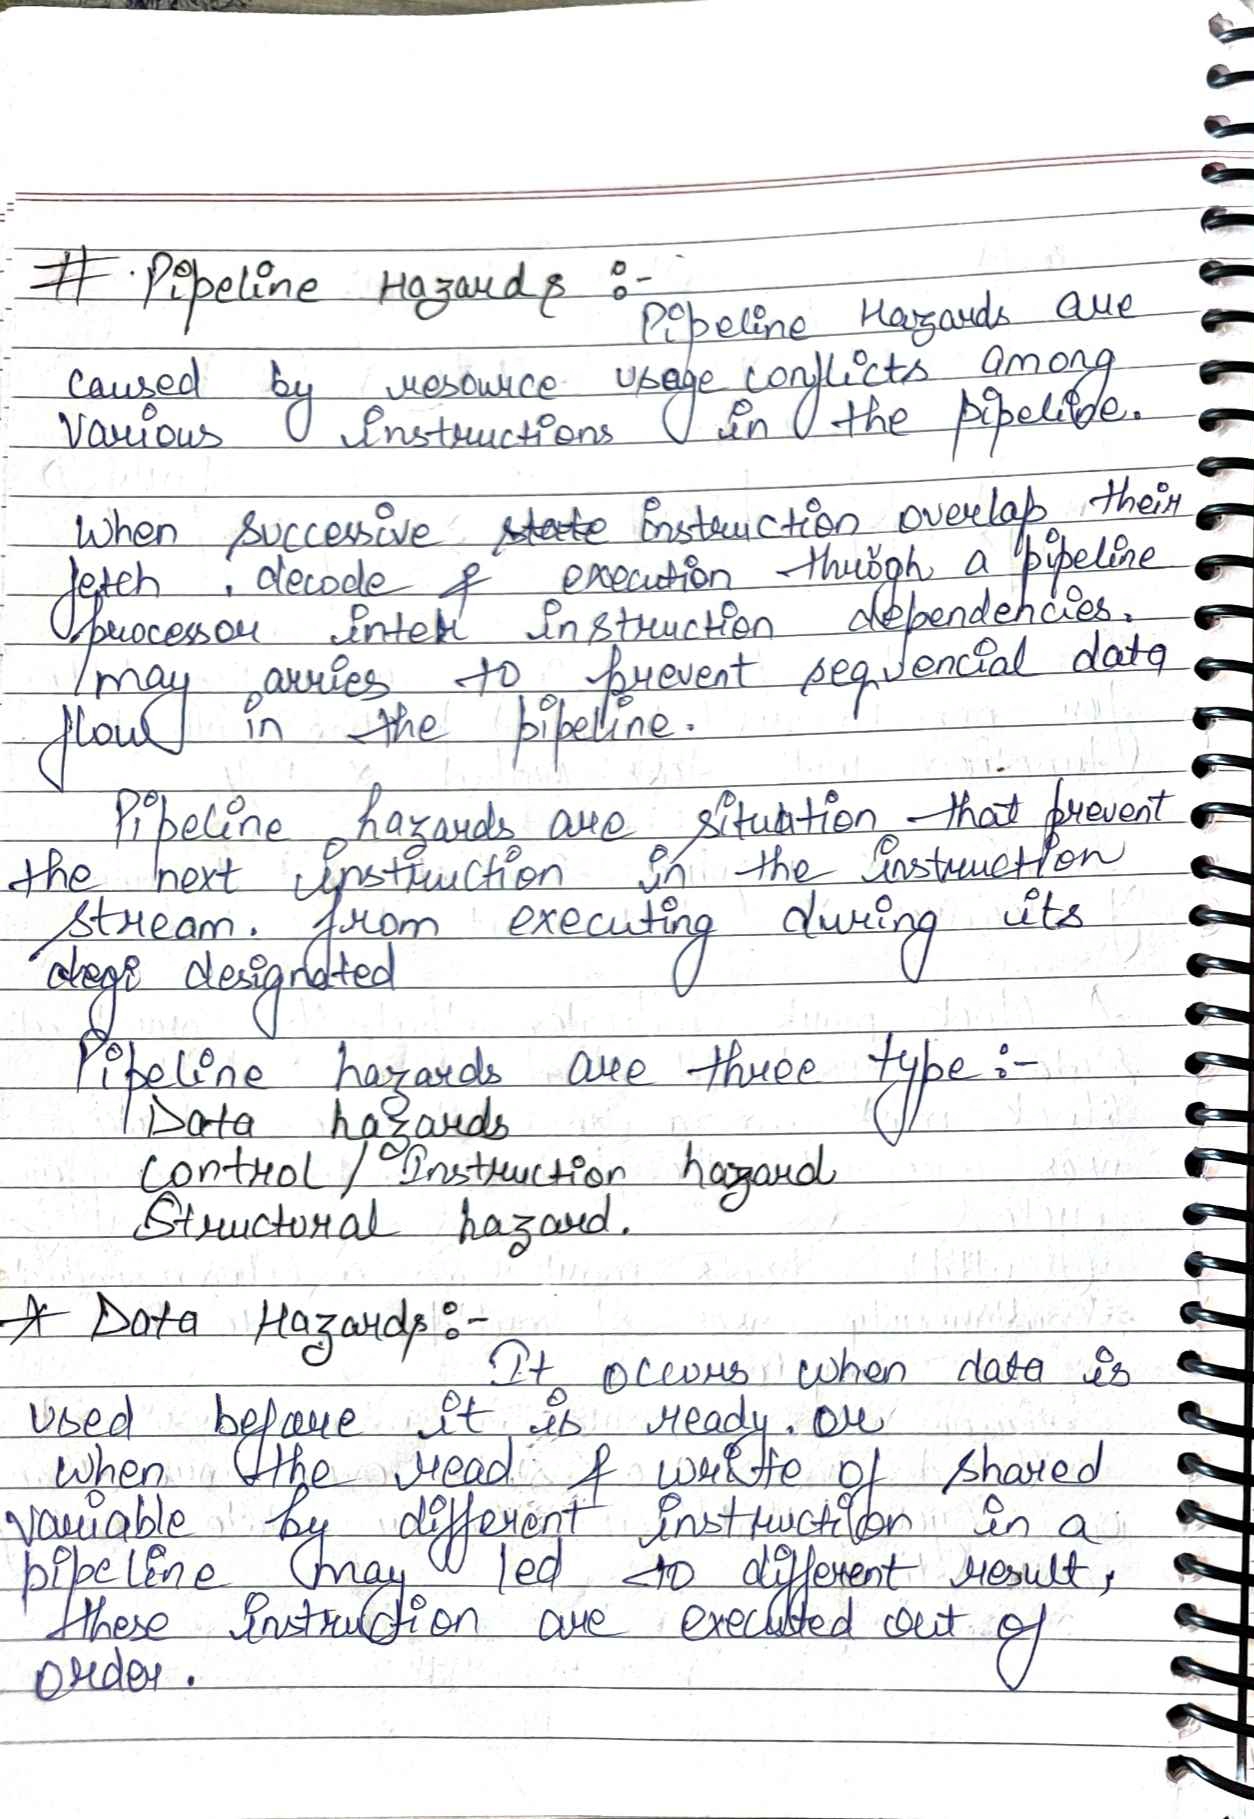 # Pipeline Hazards :-
Pipeline Hazards are
caused by resource usage conflicts among
various instructions in the pipeline.
When successive state instruction overlap their
fetch, decode & execution through a pipeline
processor inter instruction dependencies.
may arries to prevent sequencial data
flow in the pipeline.
Pipeline hazards are situation that prevent
the next instruction in the instruction
stream. from executing during its
degi designated
Pipeline hazards are three type :-
Data hazards
control / Instruction hazard
Structural hazard.
* Data Hazards :-
It occurs when data is
used before it is ready. or
when the read & write of shared
variable by different instruction in a
pipeline may led to different result,
these instruction are executed out of
order.